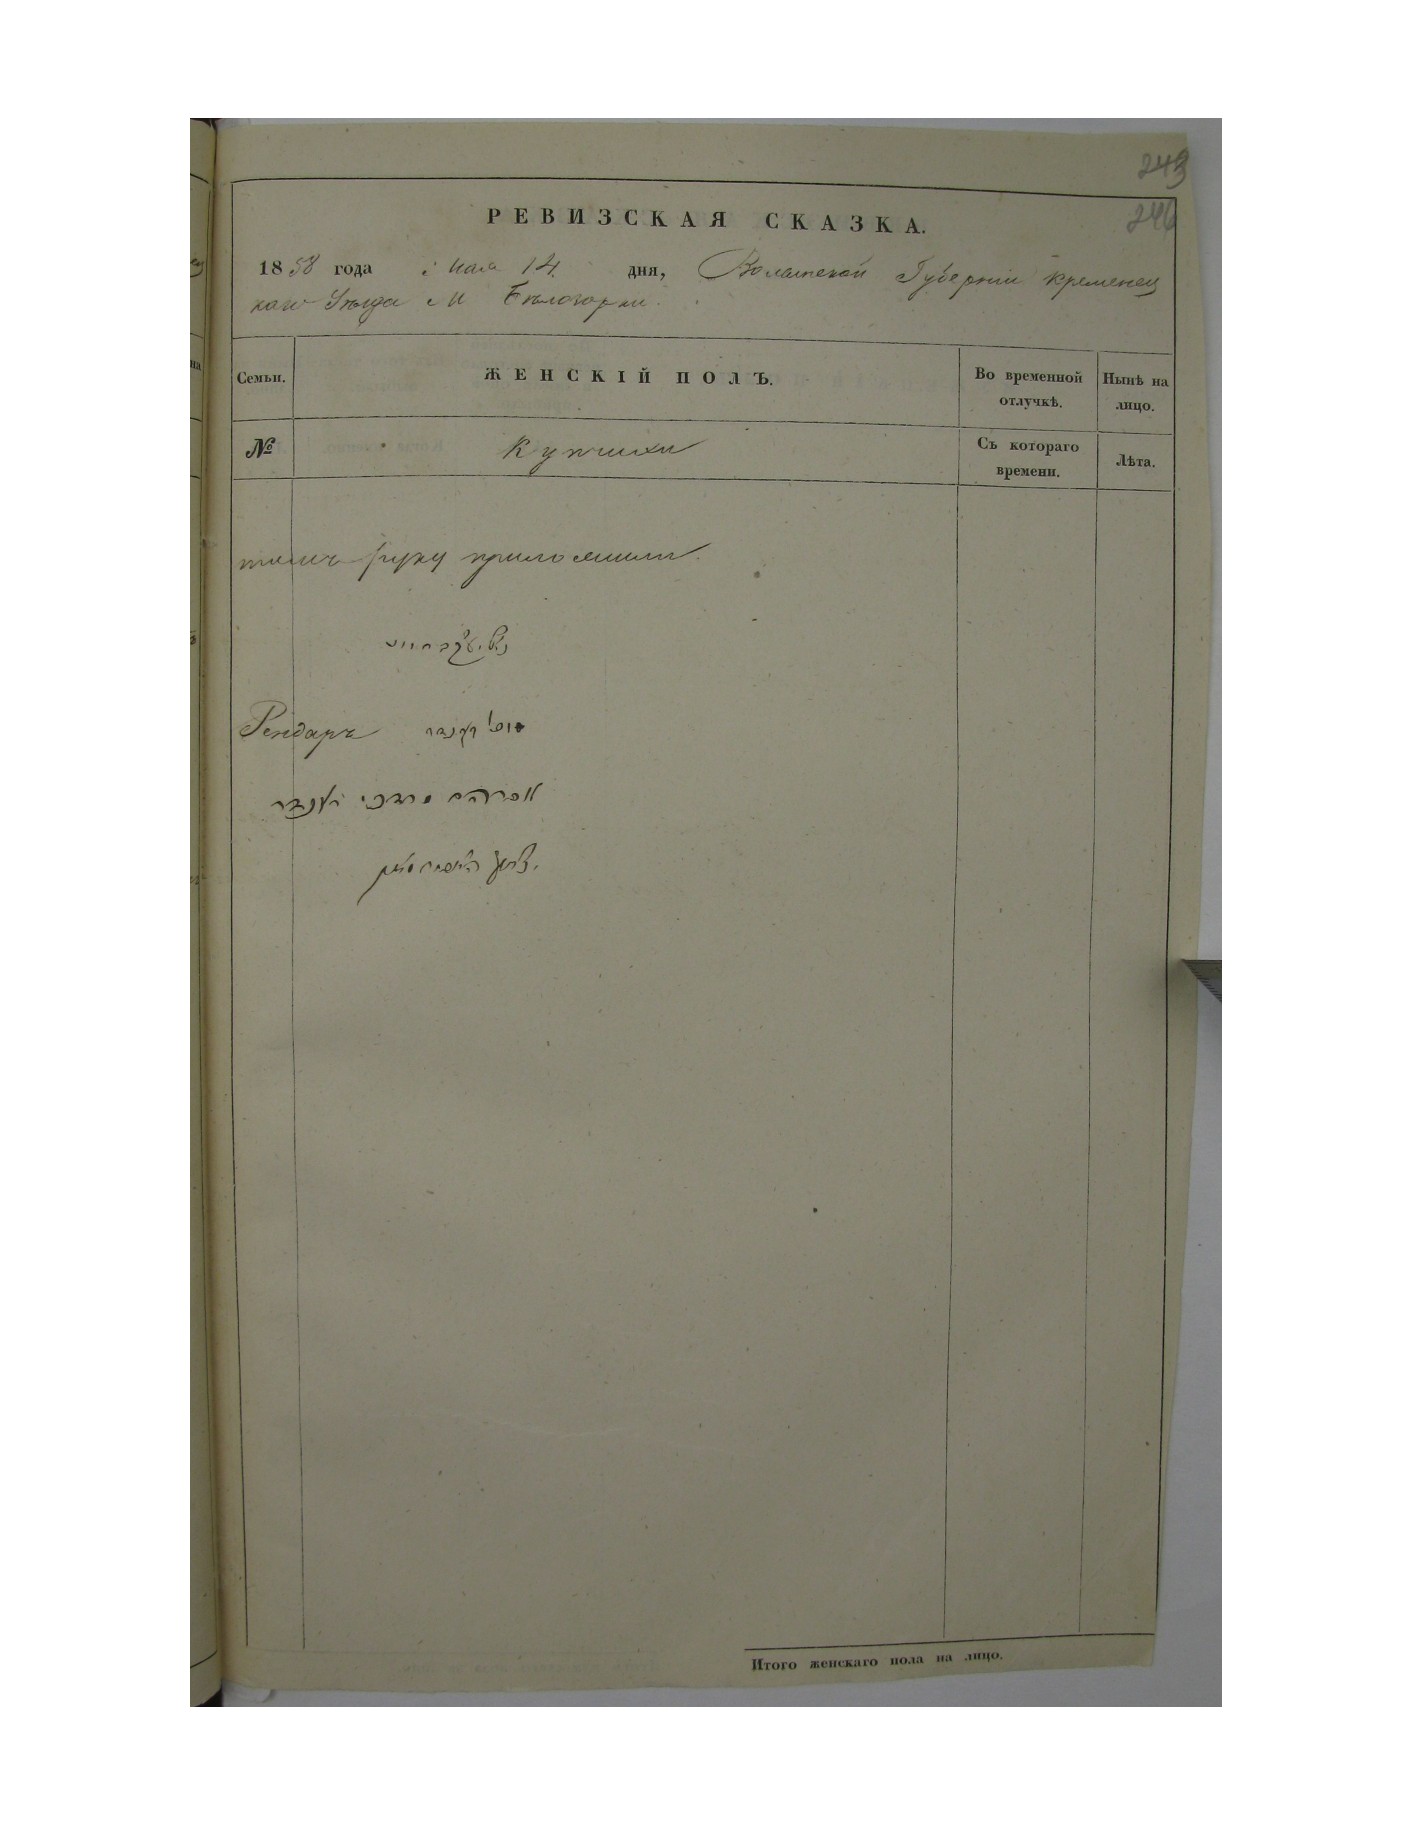 243
246
РЕВИЗСКАЯ СКАЗКА.
1858 года мая 14. дня, Волынской Губернии Кременец
каго Уѣзда М Бѣлогорки.
Семьи. ЖЕНСКІЙ ПОЛЪ. Во временной отлучкѣ. Нынѣ на лицо.
№ Купчихи Съ котораго времени. Лѣта.
руку приложили.
Рендаръ יוסל רענדר
אברהם מרדכי רענדר
Итого женскаго пола на лицо.